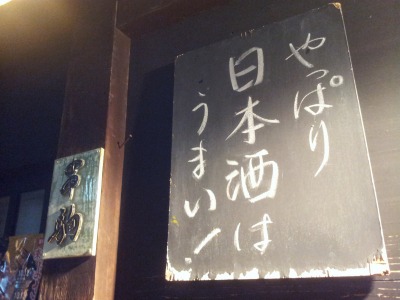 やっぱり
日本酒は
うまい!
お駒